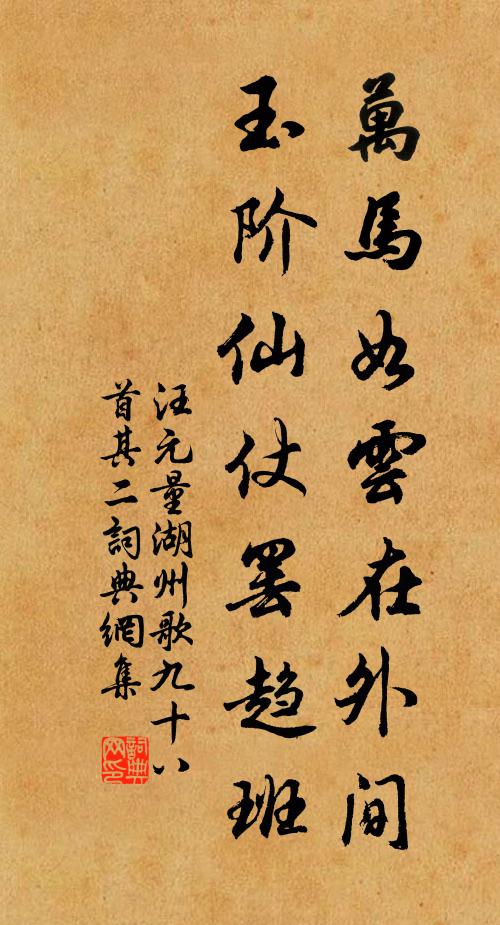 萬馬如雲在外间
玉阶仙仗罢趋班
汪元量湖州歌九十八
首其二詞典網集
詞典
网印